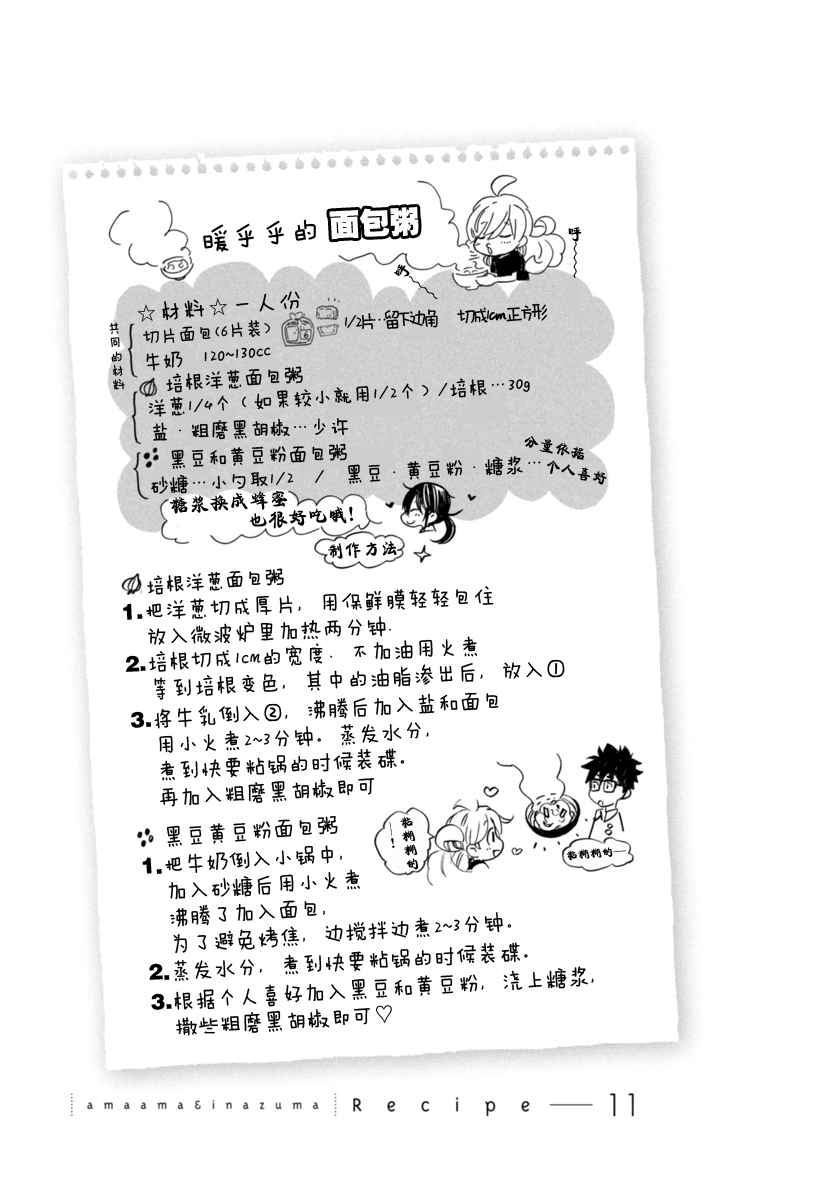 暖乎乎的 面包粥
呼
呼
☆材料☆一人份
共同的材料
切片面包(6片装)
1/2片··留下边角 切成1cm正方形
牛奶 120~130cc
培根洋葱面包粥
洋葱1/4个(如果较小就用1/2个)/培根…30g
盐·粗磨黑胡椒…少许
黑豆和黄豆粉面包粥
砂糖…小勺取1/2 / 黑豆·黄豆粉·糖浆…
分量依据
个人喜好
糖浆换成蜂蜜
也很好吃哦!
制作方法
培根洋葱面包粥
1.把洋葱切成厚片, 用保鲜膜轻轻包住
放入微波炉里加热两分钟.
2.培根切成1cm的宽度. 不加油用火煮
等到培根变色, 其中的油脂渗出后, 放入①
3.将牛乳倒入②, 沸腾后加入盐和面包
用小火煮2~3分钟。蒸发水分,
煮到快要粘锅的时候装碟。
再加入粗磨黑胡椒即可
粘糊糊的!
粘糊糊的—
黑豆黄豆粉面包粥
1.把牛奶倒入小锅中,
加入砂糖后用小火煮
沸腾了加入面包,
为了避免烤焦, 边搅拌边煮2~3分钟。
2.蒸发水分, 煮到快要粘锅的时候装碟。
3.根据个人喜好加入黑豆和黄豆粉, 浇上糖浆,
撒些粗磨黑胡椒即可♡
amaama&inazuma Recipe — 11